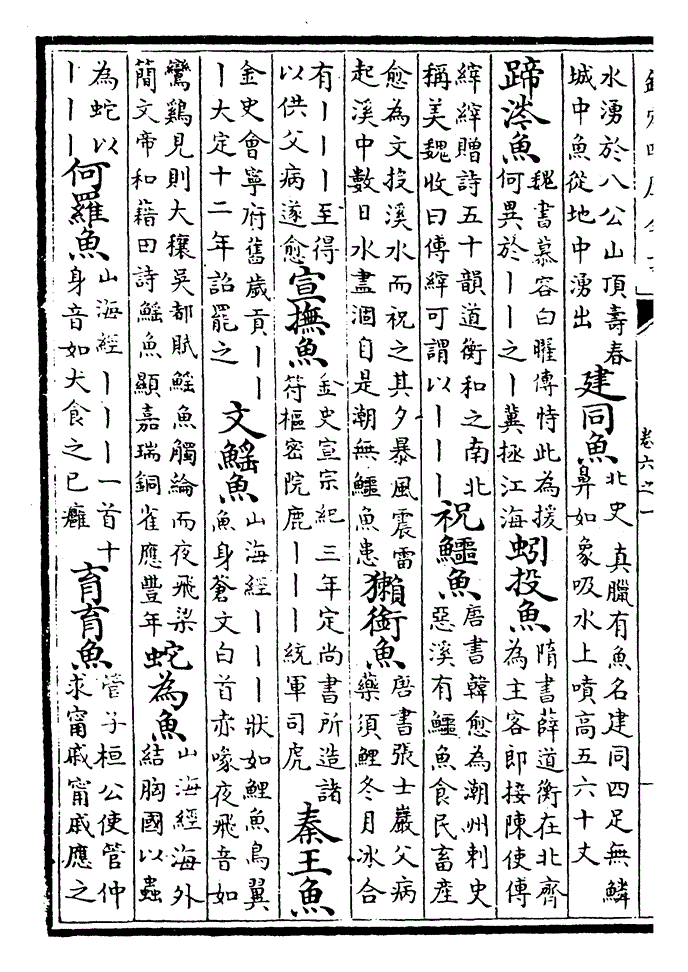 卷六之一
水湧於八公山頂壽春
城中魚從地中湧出
建同魚
北史真臘有魚名建同四足無鱗
鼻如象吸水上噴高五六十丈
蹄涔魚
魏書慕容白曜傳恃此為援
何異於丨丨之丨冀拯江海
蚓投魚
隋書薛道衡在北齊
為主客郎接陳使傅
縡縡贈詩五十韻道衡和之南北
稱美魏收曰傅縡可謂以丨丨丨
祝鱷魚
唐書韓愈為潮州刺史
惡溪有鱷魚食民畜產
愈為文投溪水而祝之其夕暴風震雷
起溪中數日水盡涸自是潮無鱷魚患
獺銜魚
唐書張士巖父病
藥須鯉冬月冰合
有丨丨丨至得
以供父病遂愈
宣撫魚
金史宣宗紀三年定尚書所造諸
符樞密院鹿丨丨丨統軍司虎
秦王魚
金史會寧府舊歲貢丨丨
丨大定十二年詔罷之
文鰩魚
山海經丨丨丨狀如鯉魚鳥翼
魚身蒼文白首赤喙夜飛音如
鸞鷄見則大穰吳都賦鰩魚觸論而夜飛梁
簡文帝和藉田詩鰩魚顯嘉瑞銅雀應豐年
蛇為魚
山海經海外
結胸國以蟲
為蛇以
丨丨丨
何羅魚
山海經丨丨丨一首十
身音如犬食之已癰
育育魚
管子桓公使管仲
求甯戚甯戚應之